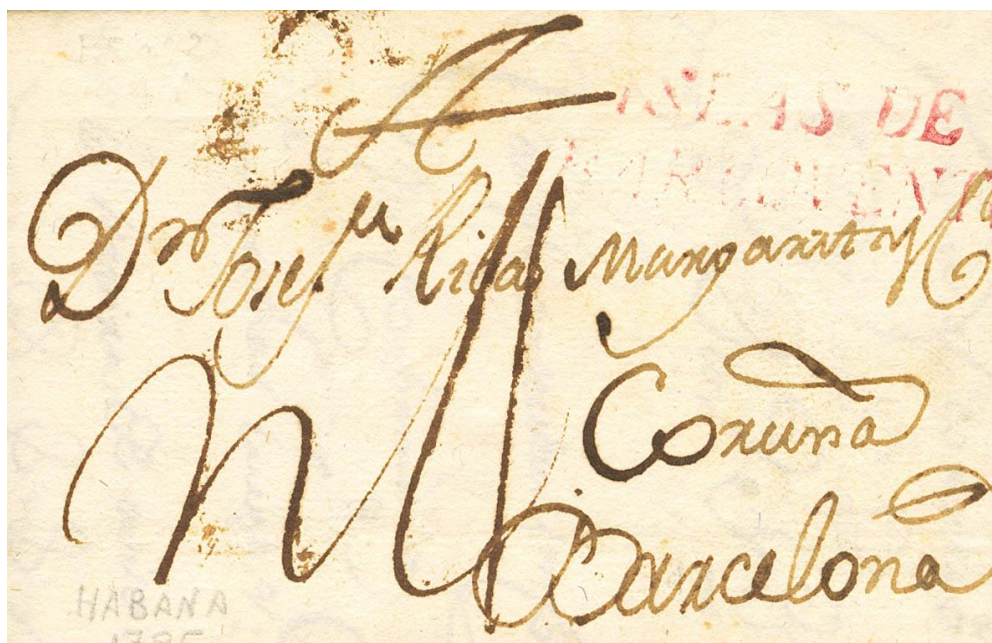 ISLAS DE
BARLOVENT
Dn Josef Ribas Margarit y Ca
Coruña
Barcelona
HABANA
1785